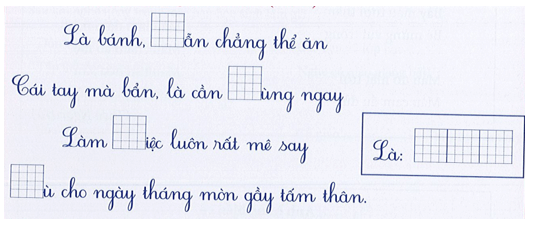 Là bánh, ẵn chẳng thể ăn
Cái tay mà bẩn, là cần ùng ngay
Làm iệc luôn rất mê say
Là:
ù cho ngày tháng mòn gầy tấm thân.